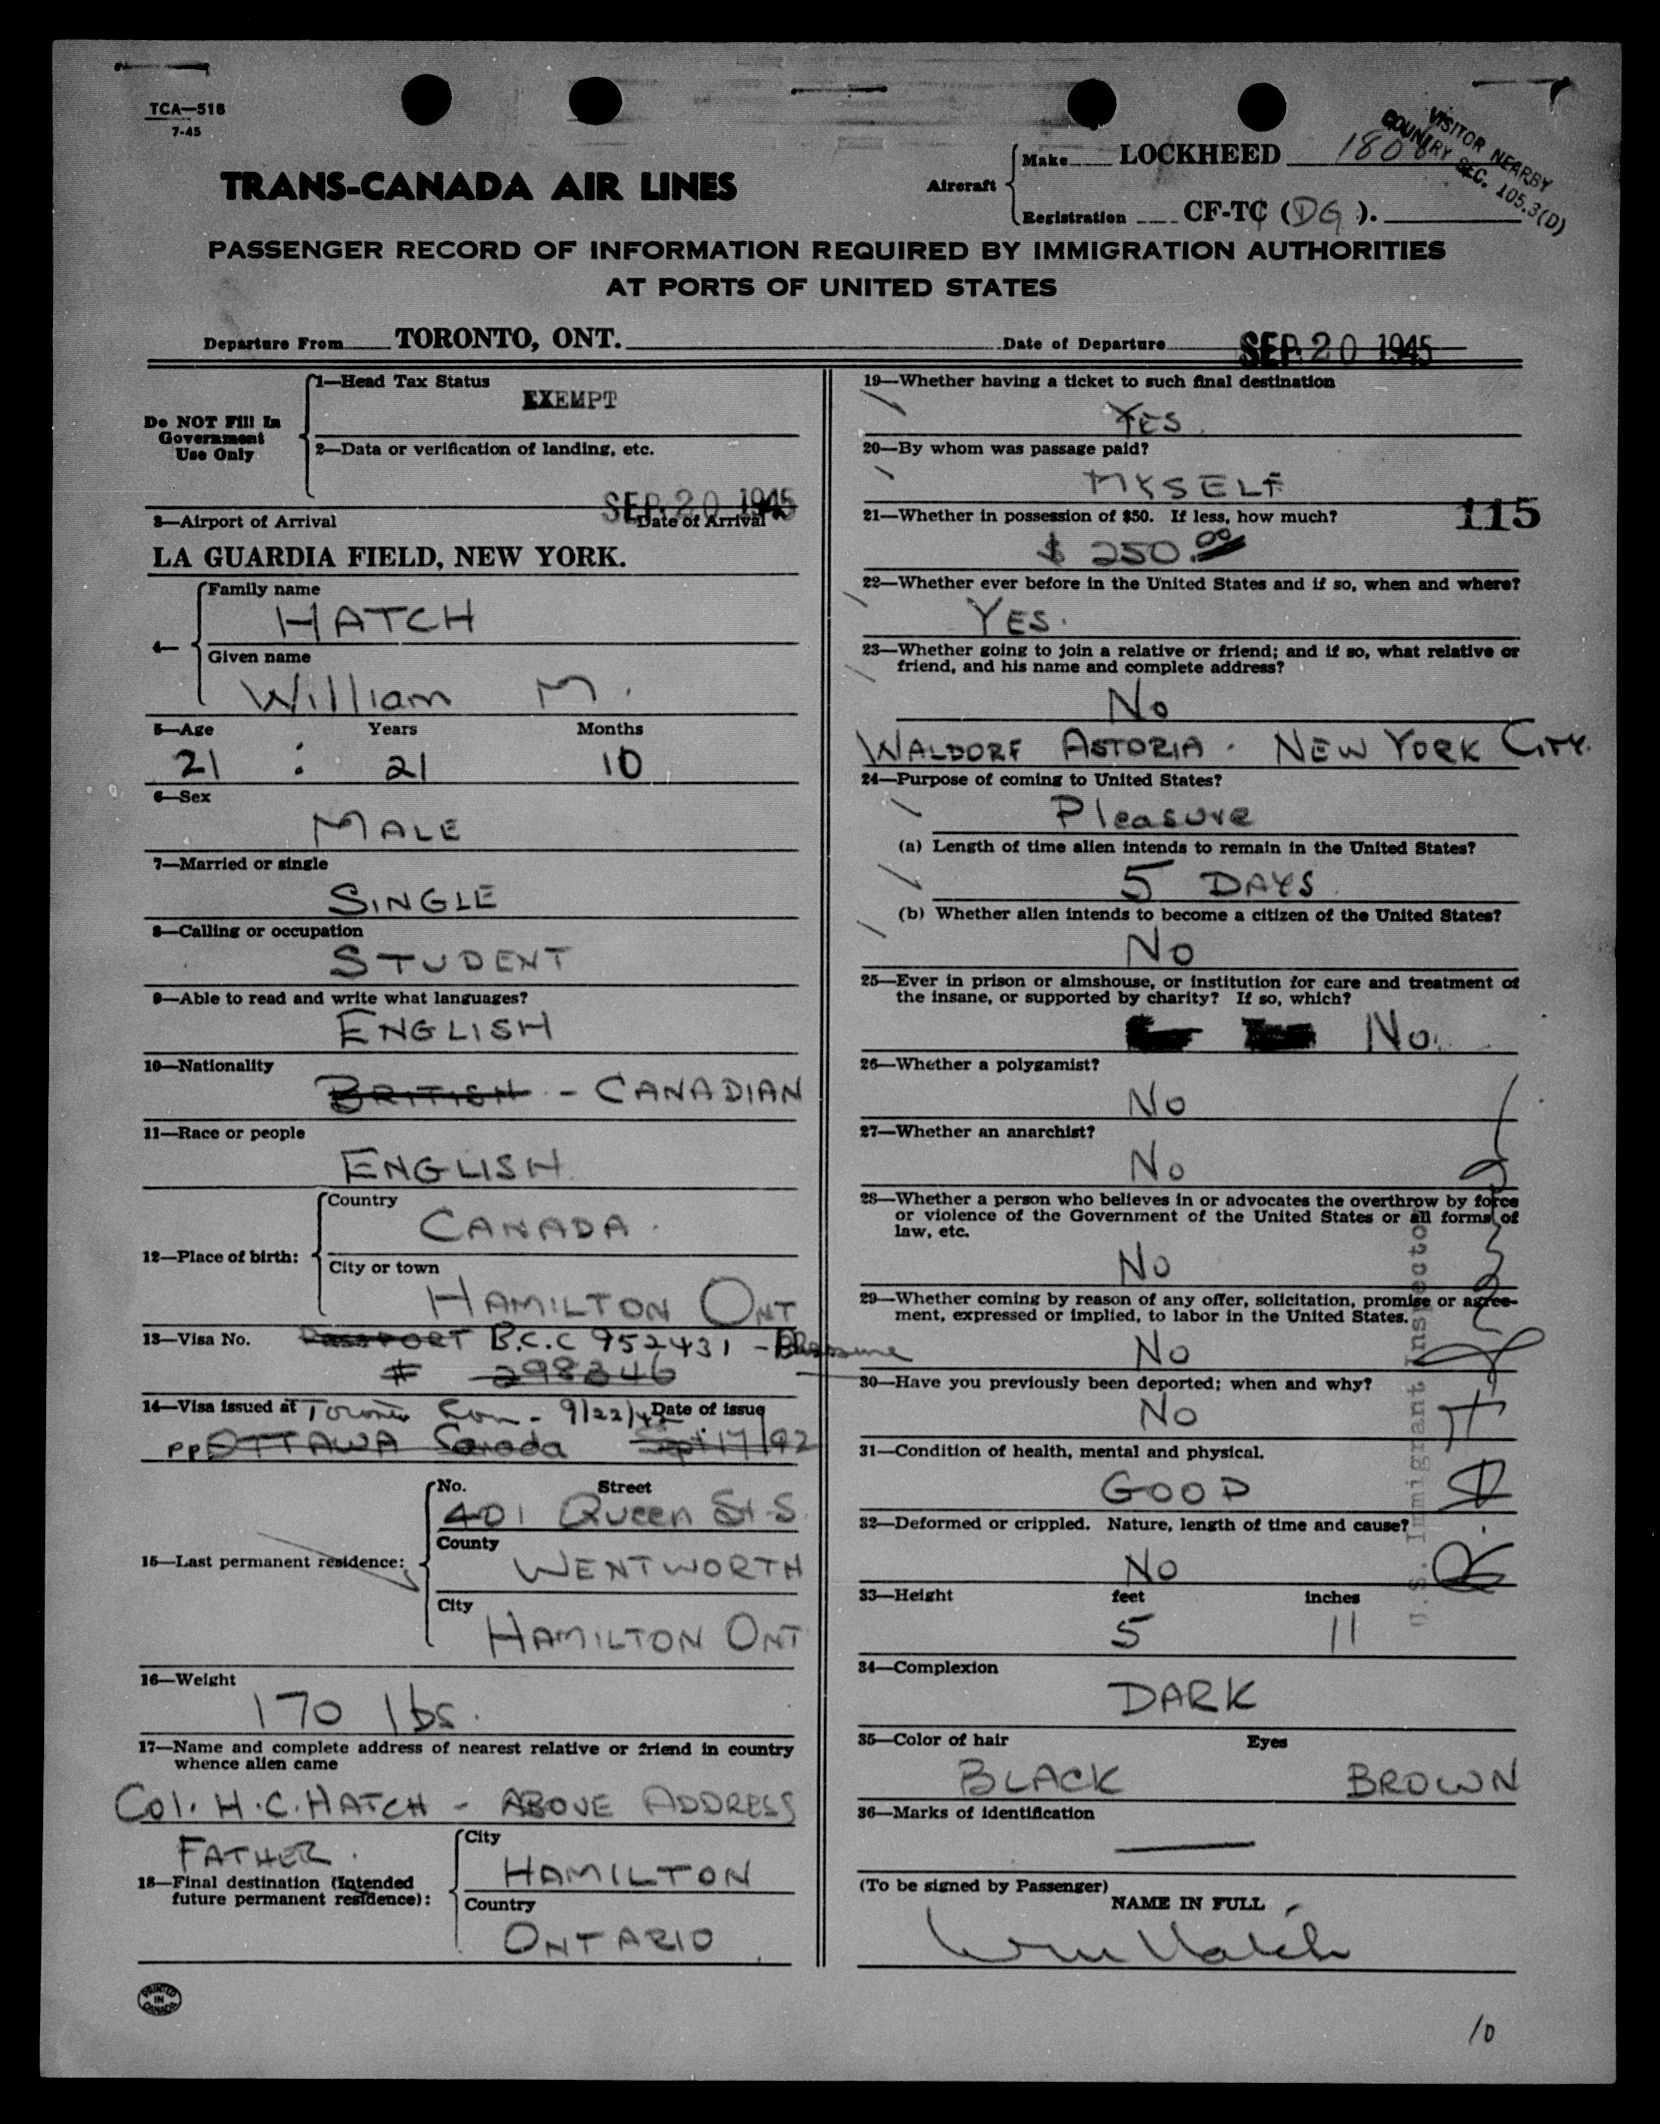 TCA—518
7-45
VISITOR NEARBY
COUNTRY SEC. 105.3(D)
TRANS-CANADA AIR LINES
Aircraft
Make LOCKHEED 1808
Registration CF-TC (DG).
PASSENGER RECORD OF INFORMATION REQUIRED BY IMMIGRATION AUTHORITIES
AT PORTS OF UNITED STATES
Departure From TORONTO, ONT. Date of Departure SEP 20 1945
Do NOT Fill In
Government
Use Only
1—Head Tax Status
EXEMPT
2—Data or verification of landing, etc.
SEP 20 1945
3—Airport of Arrival Date of Arrival
LA GUARDIA FIELD, NEW YORK.
4—
Family name
HATCH
Given name
William M.
5—Age Years Months
21 : 21 10
6—Sex
MALE
7—Married or single
SINGLE
8—Calling or occupation
STUDENT
9—Able to read and write what languages?
ENGLISH
10—Nationality
BRITISH - CANADIAN
11—Race or people
ENGLISH
12—Place of birth:
Country
CANADA
City or town
HAMILTON ONT
13—Visa No. PASSPORT B.C.C 952431 -
# 298346
14—Visa issued at Toronto Con - 9/22/42 Date of issue
PP OTTAWA Canada Sept 17/42
15—Last permanent residence:
No. Street
401 Queen St. S.
County
WENTWORTH
City
HAMILTON ONT
16—Weight
170 lbs.
17—Name and complete address of nearest relative or friend in country
whence alien came
Col. H.C. HATCH - ABOVE ADDRESS
FATHER.
18—Final destination (Intended
future permanent residence):
City
HAMILTON
Country
ONTARIO
PRINTED
IN
CANADA
19—Whether having a ticket to such final destination
YES.
20—By whom was passage paid?
MYSELF
21—Whether in possession of $50. If less, how much?
115
$ 250.00
22—Whether ever before in the United States and if so, when and where?
YES.
23—Whether going to join a relative or friend; and if so, what relative or
friend, and his name and complete address?
No
WALDORF ASTORIA. NEW YORK CITY.
24—Purpose of coming to United States?
Pleasure
(a) Length of time alien intends to remain in the United States?
5 DAYS
(b) Whether alien intends to become a citizen of the United States?
No
25—Ever in prison or almshouse, or institution for care and treatment of
the insane, or supported by charity? If so, which?
No.
26—Whether a polygamist?
No
27—Whether an anarchist?
No
28—Whether a person who believes in or advocates the overthrow by force
or violence of the Government of the United States or all forms of
law, etc.
No
29—Whether coming by reason of any offer, solicitation, promise or agree-
ment, expressed or implied, to labor in the United States.
No
30—Have you previously been deported; when and why?
No
31—Condition of health, mental and physical.
GOOD
32—Deformed or crippled. Nature, length of time and cause?
No
U.S. Immigrant Inspector
33—Height feet inches
5 11
34—Complexion
DARK
35—Color of hair Eyes
BLACK BROWN
36—Marks of identification
(To be signed by Passenger)
NAME IN FULL
Wm Hatch
10